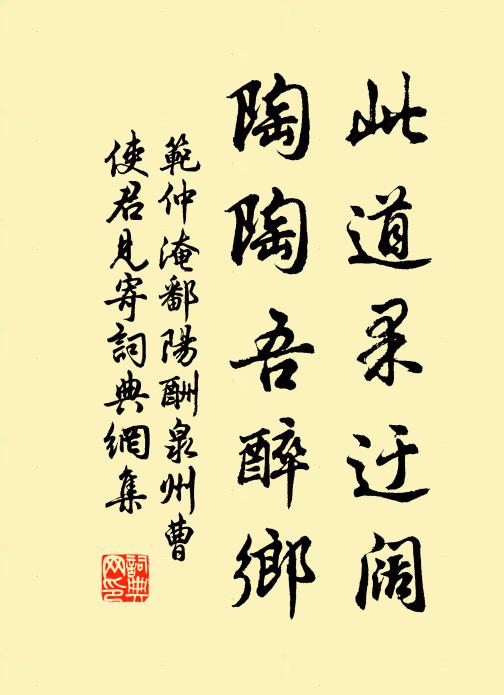 此道果迂阔
陶陶吾醉鄉
範仲淹鄱陽酬泉州曹
使君見寄詞典網集
詞典网印